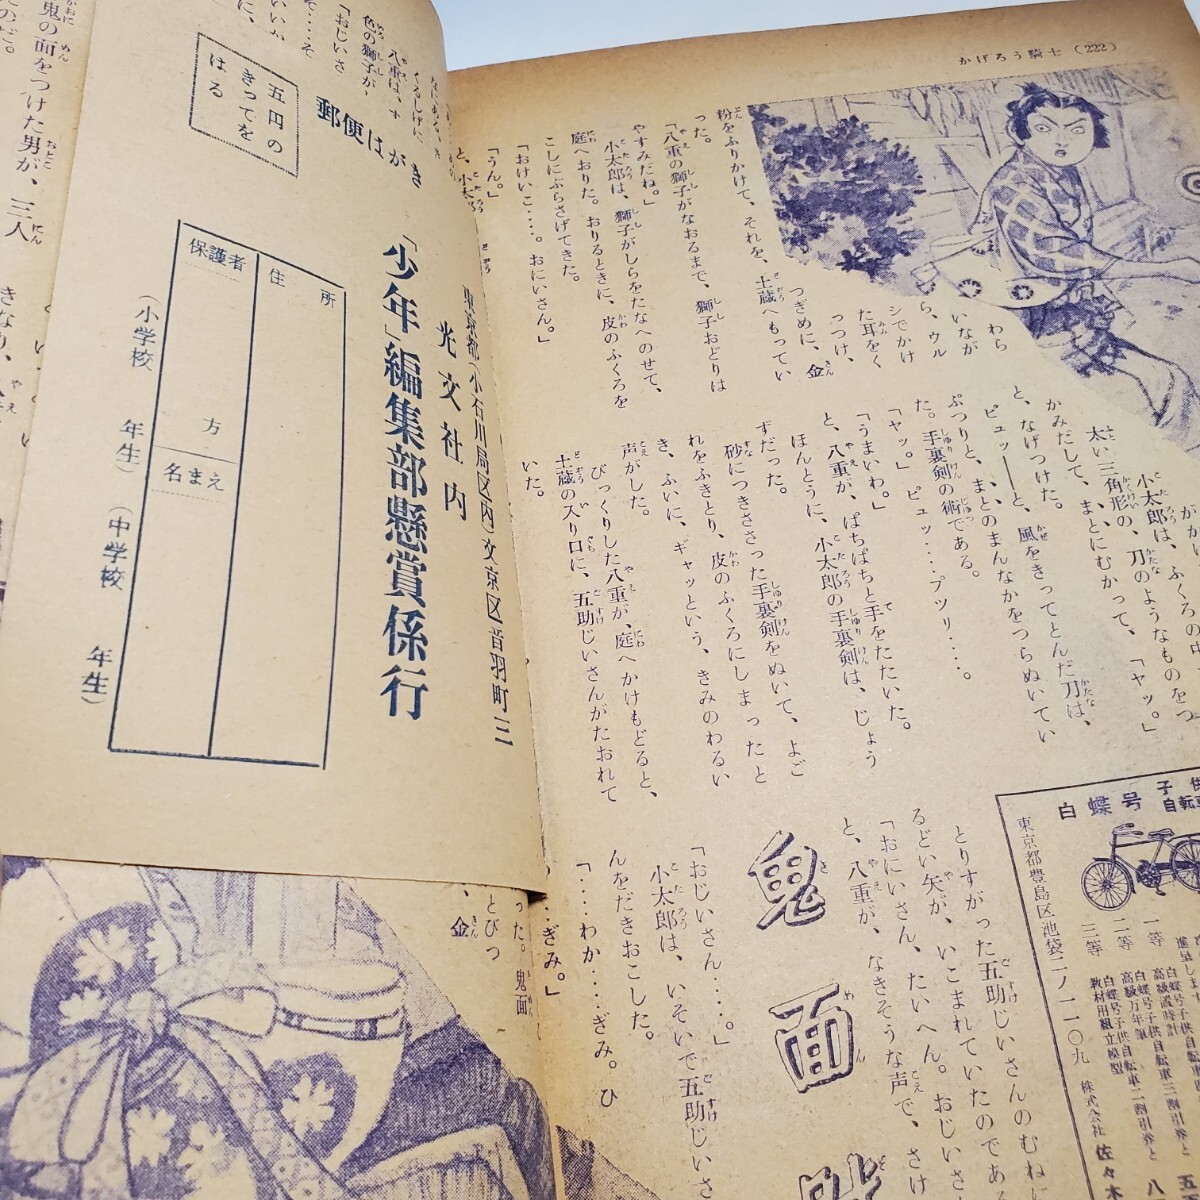 かげろう騎士 (222)
粉をふりかけて、それを、土蔵へもってい
った。
「八重の獅子がなおるまで、獅子おどりは
やすみだね。」
小太郎は、獅子がしらをたなへのせて、
庭へおりた。おりるときに、皮のふくろを
こしにぶらさげてきた。
「おけいこ……。おにいさん。」
「うん。」
と、小太郎
わら
いなが
ら、ウル
シでかけ
た耳をく
っつけ、
つぎめに、金
小太郎は、ふくろの中
太い三角形の、刀のようなものをつ
かみだして、まとにむかって、「ヤッ。」
と、なげつけた。
ピュッ――と、風をきってとんだ刀は、
ぷつりと、まとのまんなかをつらぬいてい
た。手裏剣の術である。
「ヤッ。」ピュッ……プツリ……。
「うまいわ。」
と、八重が、ぱちぱちと手をたたいた。
ほんとうに、小太郎の手裏剣は、じょう
ずだった。
砂につきささった手裏剣をぬいて、よご
れをふきとり、皮のふくろにしまったと
き、ふいに、ギャッという、きみのわるい
声がした。
びっくりした八重が、庭へかけもどると、
土蔵の入り口に、五助じいさんがたおれて
いた。
とりすがった五助じいさんのむね
るどい矢が、いこまれていたのである
「おにいさん、たいへん。おじいさ
と、八重が、なきそうな声で、さけ
鬼面
「おじいさん……。」
小太郎は、いそいで五助じいさ
んをだきおこした。
「……わか……ぎみ。ひ
……ぎみ。」
白蝶号
東京都豊島区池袋二ノ一一〇九
一等
二等
三等
白蝶号子供自転車三割引券と
高級置時計
白蝶号子供自転車二割引券と
高級万年筆
白蝶号子供自転車
教材用組立模型
株式会社 佐々木
郵便はがき
五円の
きってを
はる
東京都(小石川局区内)文京区音羽町三
光文社内
「少年」編集部懸賞係行
住所
保護者
方
名まえ
(小学校 年生)
(中学校 年生)
八重は、
色の獅子が
「おじいさ
鬼の面をつけた男が、三人
のだ。
た。鬼面
とびつ
、金